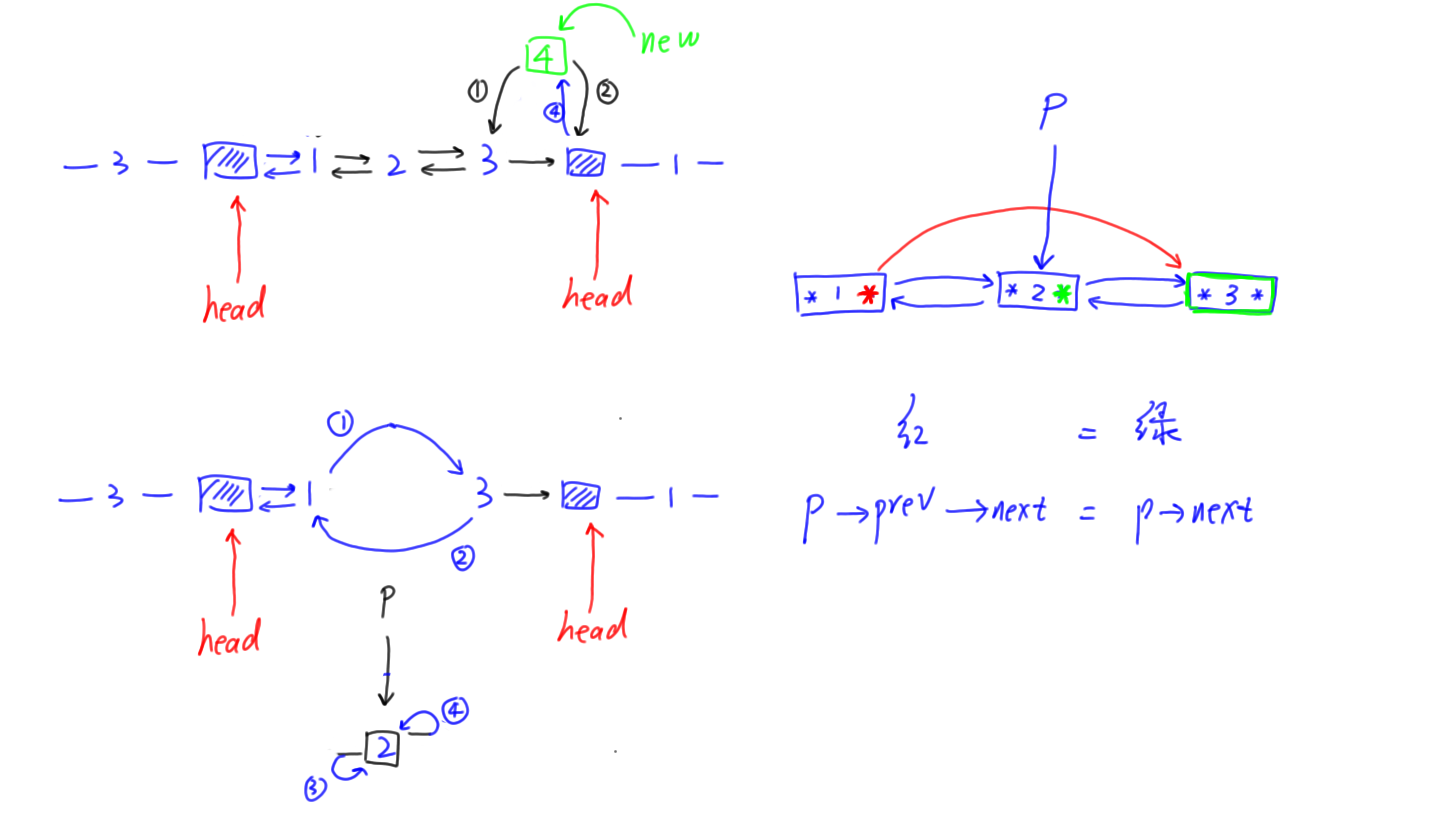 4 new
① ④ ②
— 3 — ⇄ 1 ⇄ 2 ⇄ 3 → — 1 —
head head
P
* 1 * * 2 * * 3 *
红 = 绿
P→prev→next = p→next
①
— 3 — ⇄ 1 3 → — 1 —
②
head head
P
④
2
③